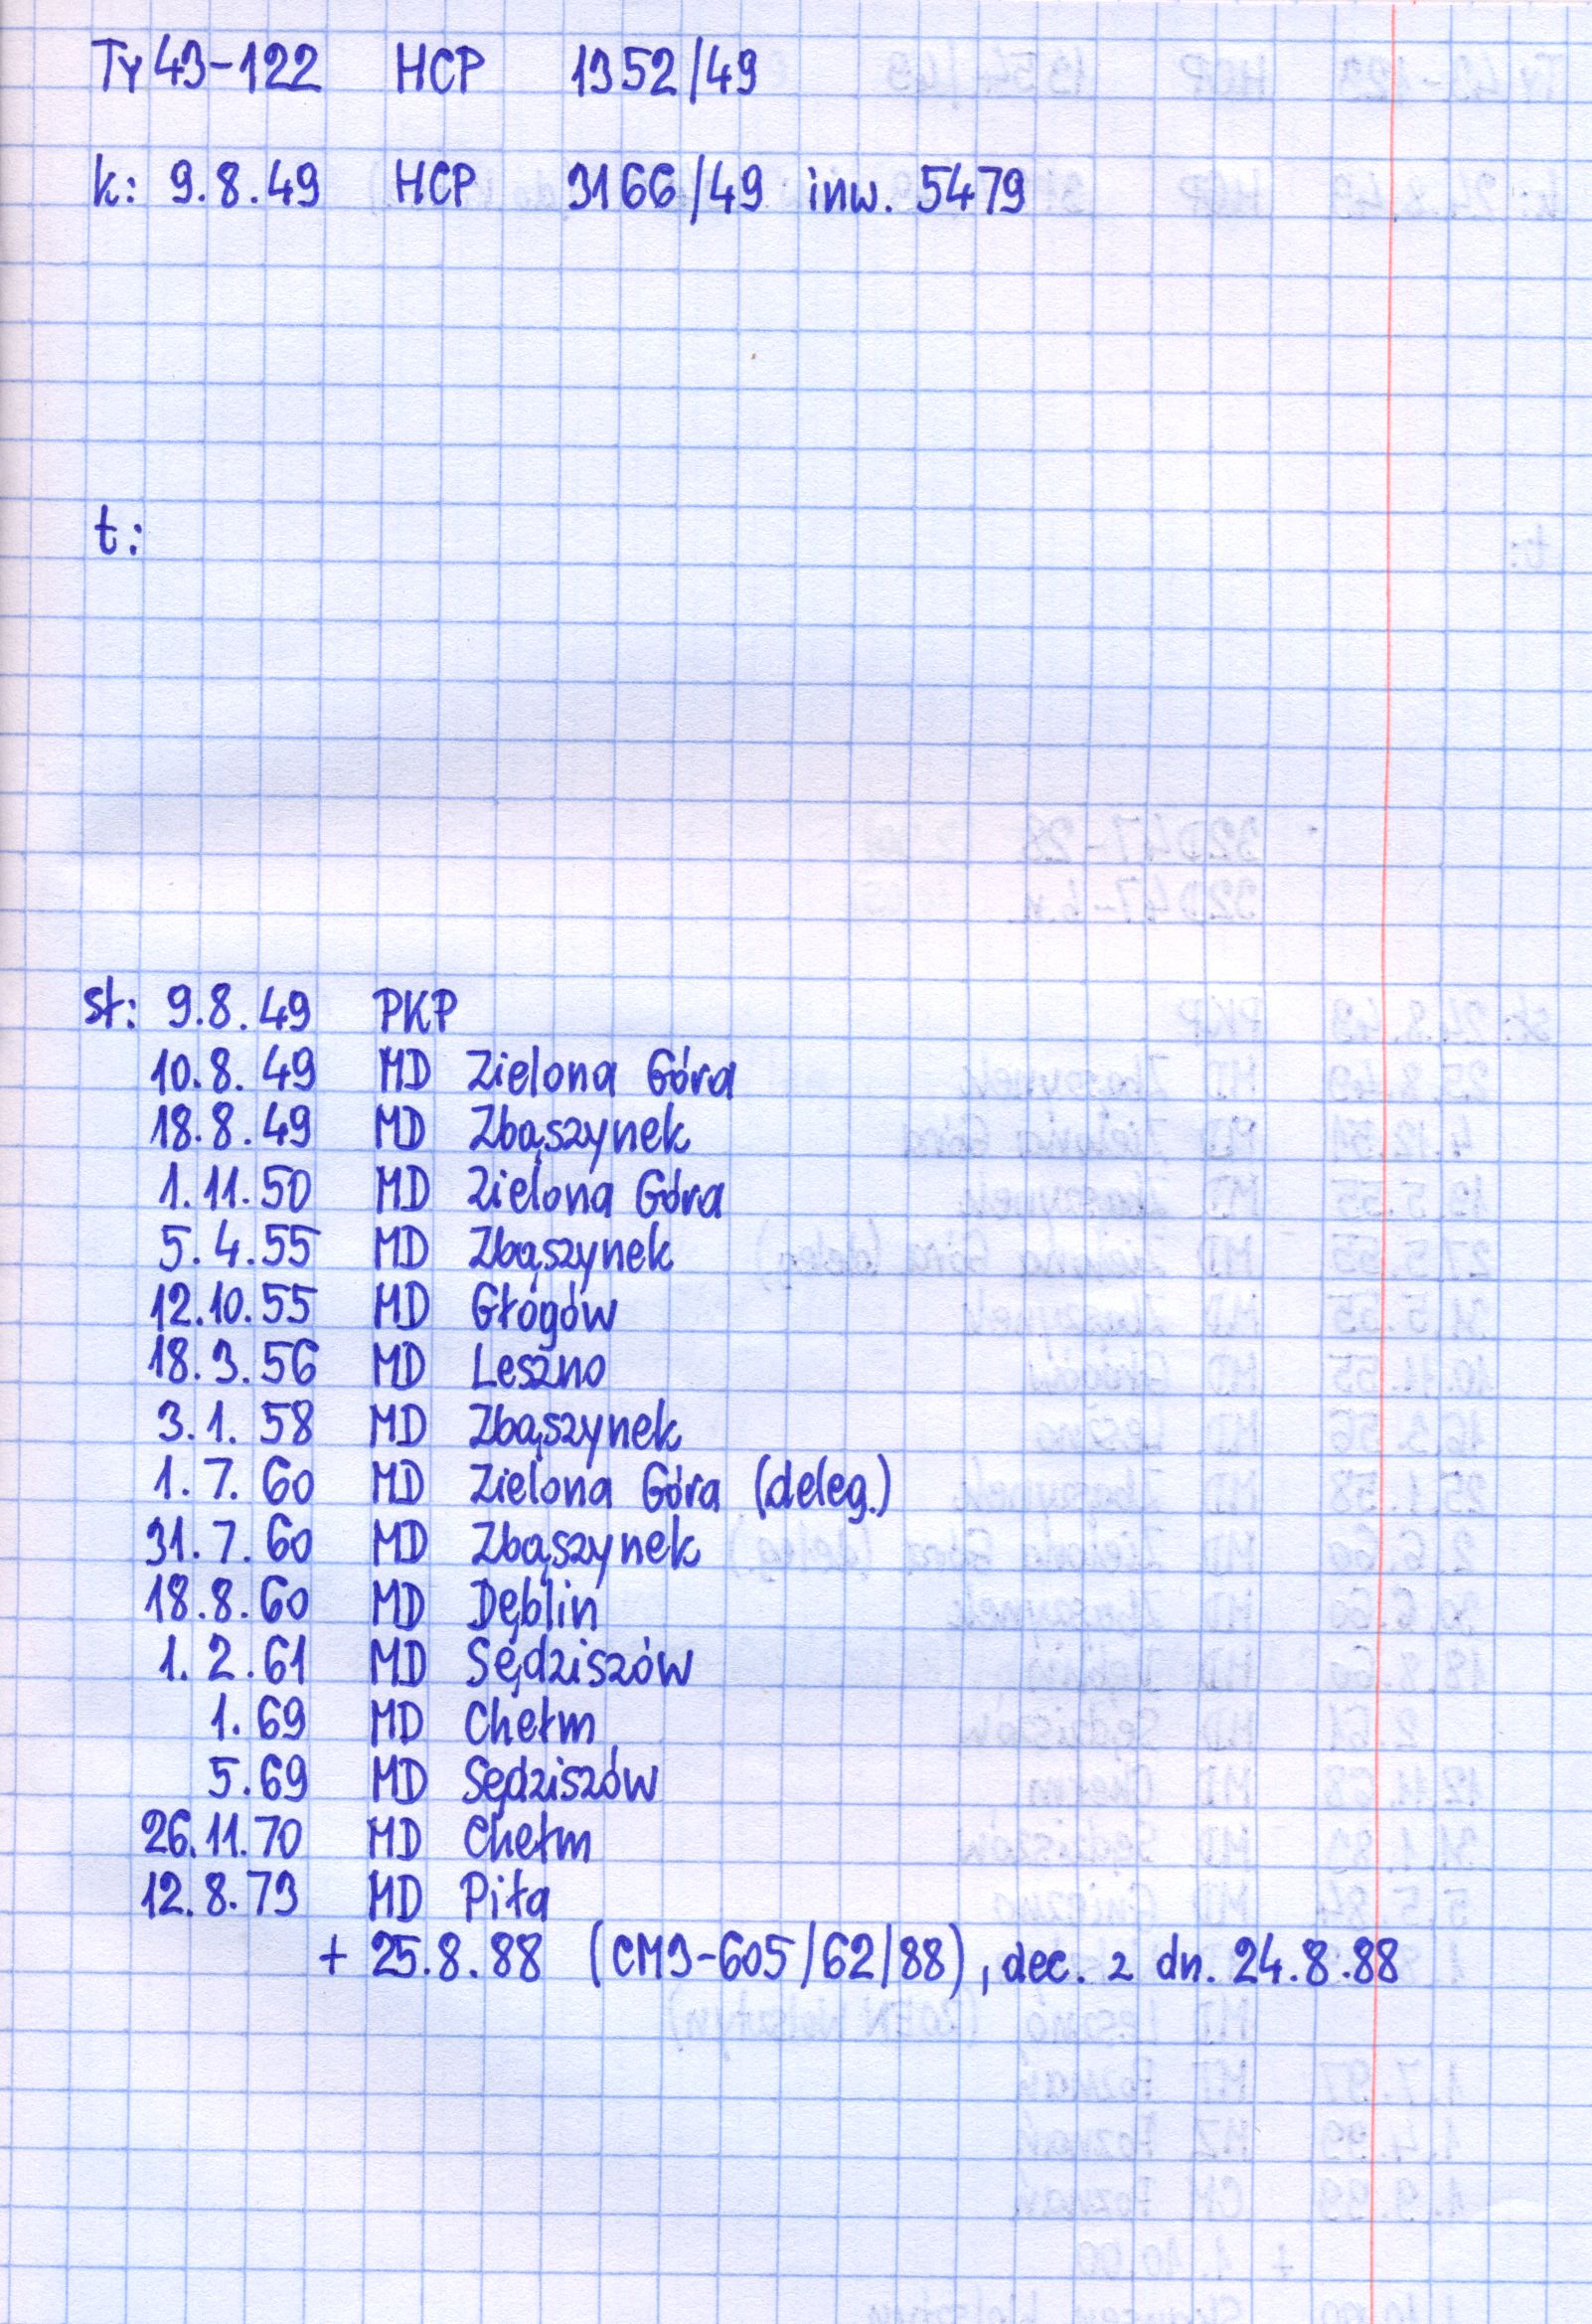 Ty43-122 HCP 1352/49
k: 9.8.49 HCP 3166/49 inw. 5479
t:
st: 9.8.49 PKP
10.8.49 MD Zielona Góra
18.8.49 MD Zbąszynek
1.11.50 MD Zielona Góra
5.4.55 MD Zbąszynek
12.10.55 MD Głogów
18.3.56 MD Leszno
3.1.58 MD Zbąszynek
1.7.60 MD Zielona Góra (deleg.)
31.7.60 MD Zbąszynek
18.8.60 MD Dęblin
1.2.61 MD Sędziszów
1.69 MD Chełm
5.69 MD Sędziszów
26.11.70 MD Chełm
12.8.73 MD Piła
+ 25.8.88 (CM3-605/62/88), dec. z dn. 24.8.88